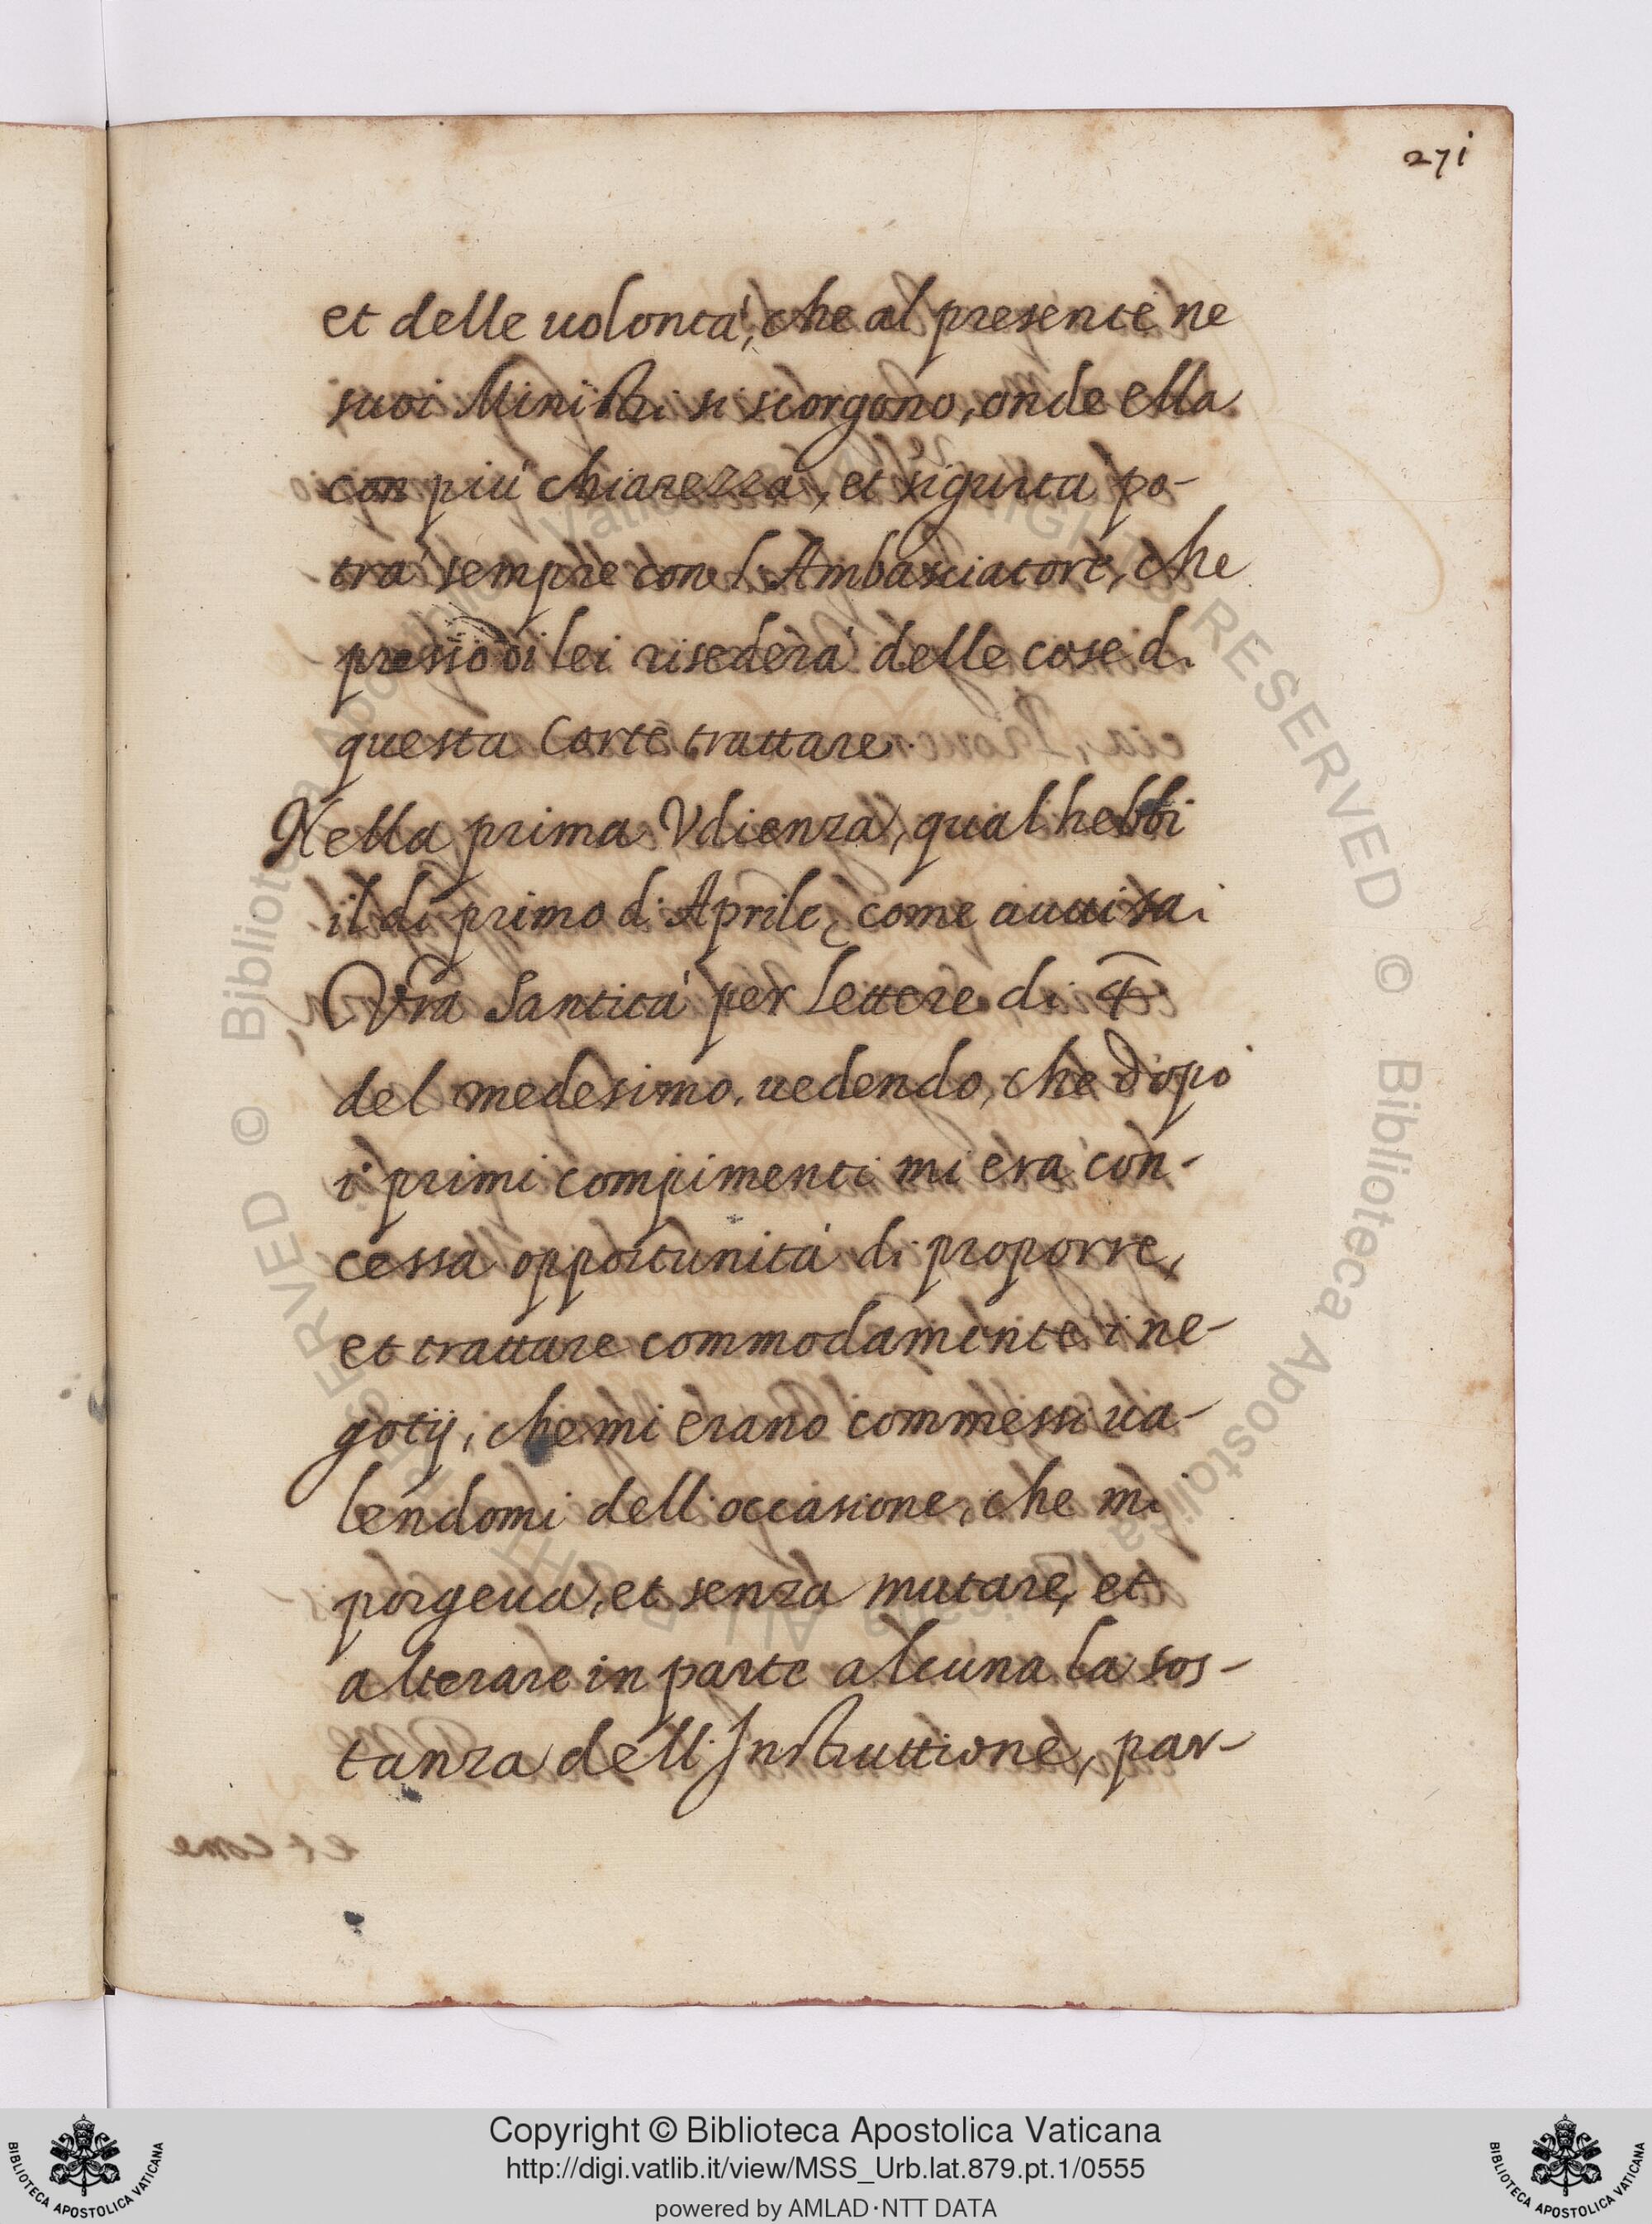 271
et delle uolontà, che al presente ne
suoi Ministri si scorgono, onde ella
con più chiarezza, et sigurtà po-
trà sempre con l'Ambasciatore, che
presso di lei risederà delle cose di
questa Corte trattare.
Nella prima Vdienza, qual hebbi
il di primo d'Aprile, come auuisai
Vra Santità per lettere di
del medesimo, uedendo, che dopo
i primi compimenti mi era con-
cessa opportunità di proporre,
et trattare commodamente i ne-
gotij, che mi erano commessi ua-
lendomi dell'occasione, che mi
porgeua, et senza mutare, et
alterare in parte alcuna la sos-
tanza dell'Instruttione, par-
et come
Copyright © Biblioteca Apostolica Vaticana
http://digi.vatlib.it/view/MSS_Urb.lat.879.pt.1/0555
powered by AMLAD·NTT DATA
BIBLIOTECA APOSTOLICA VATICANA
BIBLIOTECA APOSTOLICA VATICANA
© Biblioteca Apostolica Vaticana ALL RIGHTS RESERVED © Biblioteca Apostolica Vaticana ALL RIGHTS RESERVED